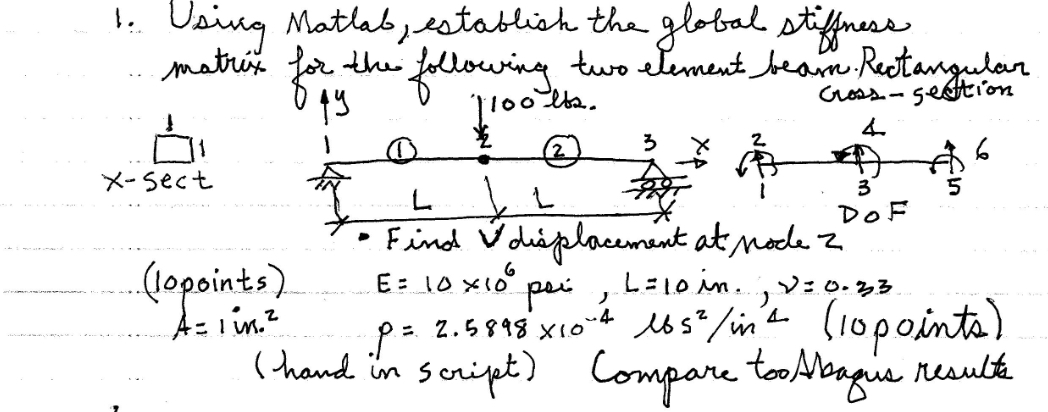 1. Using Matlab, establish the global stiffness
matrix for the following two element beam. Rectangular
cross-section
y
100 lbs.
1
X-sect
1
①
2
②
3
x
L
L
2
4
6
1
3
5
DOF
• Find V displacement at node 2
(10 points)
E = 10 x10⁶ psi, L=10 in., ν=0.33
A=1 in.²
ρ = 2.5898 x10⁻⁴ lbs²/in⁴ (10 points)
(hand in script) Compare too Abaqus results